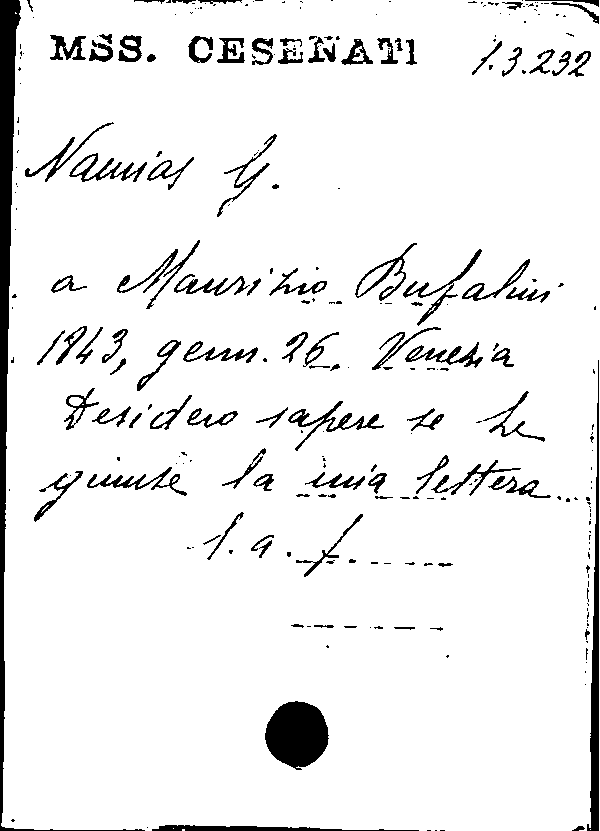 MSS. CESENATI 1.3.232
Namias G.
a Maurizio Bufalini
1843, genn. 26, Venezia
Desidero sapere se Le
giunse la mia lettera...
l. a. f.